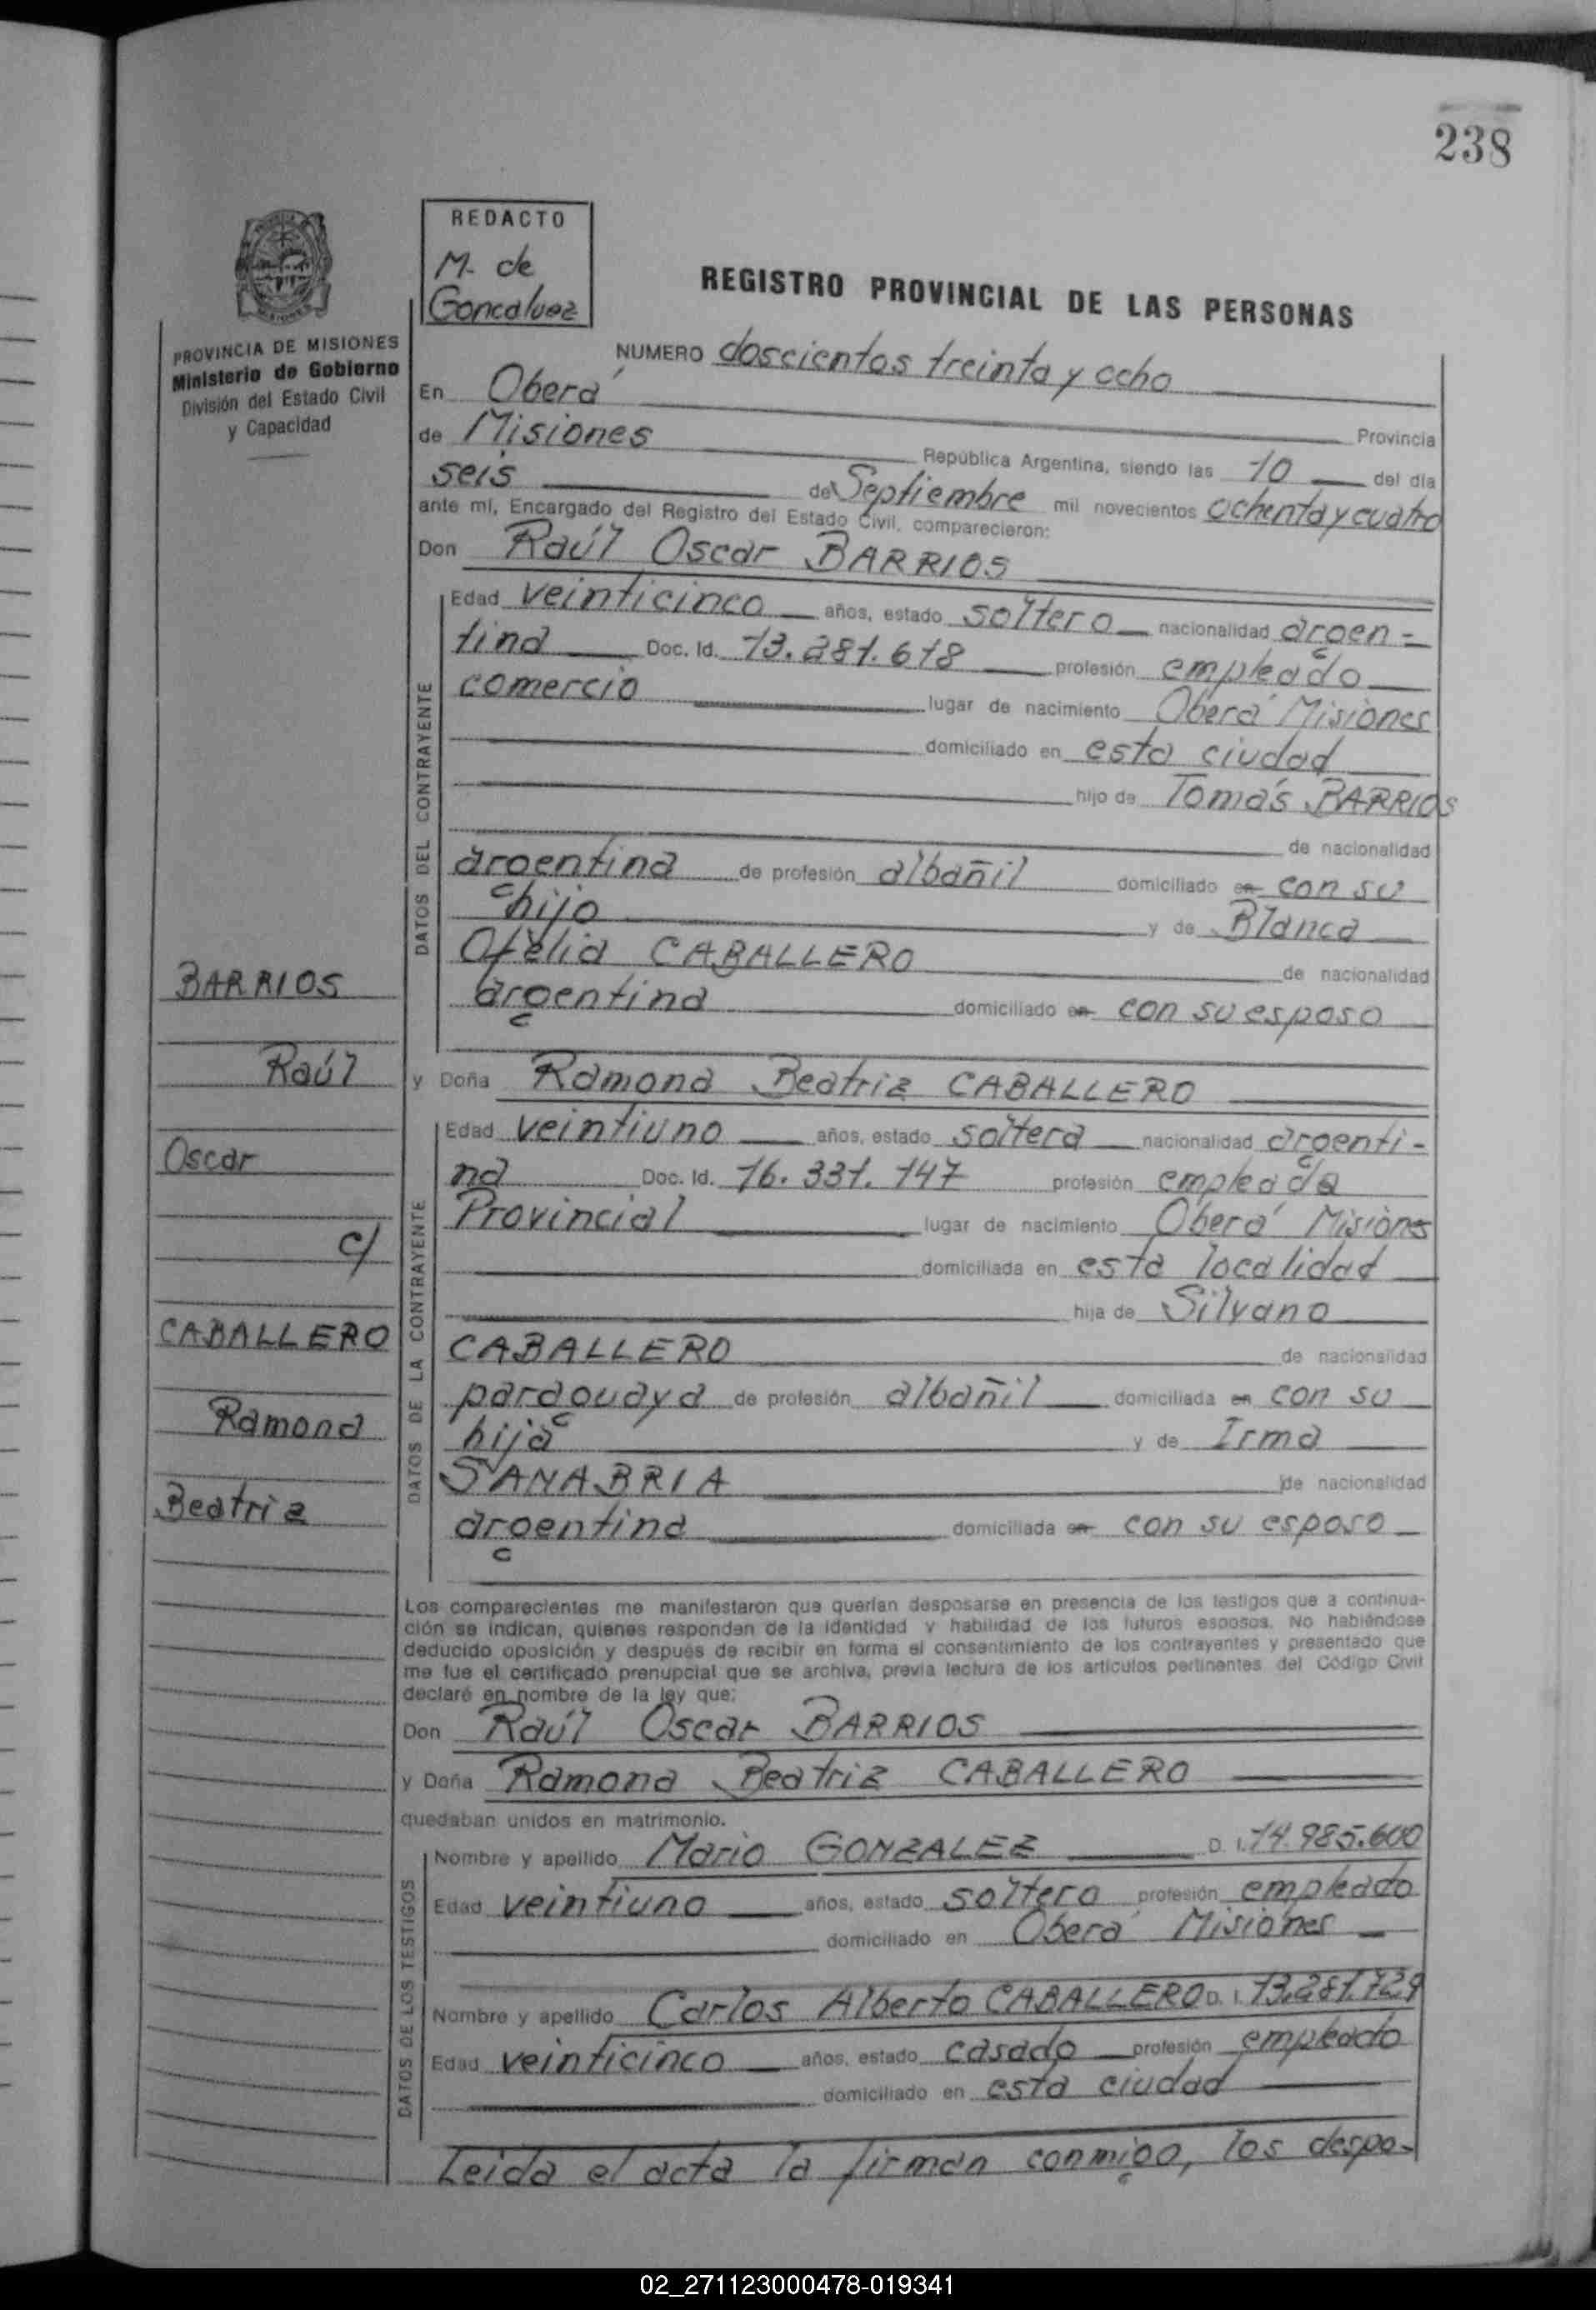 238
REDACTO
M. de
Goncalvez
REGISTRO PROVINCIAL DE LAS PERSONAS
PROVINCIA DE MISIONES
Ministerio de Gobierno
División del Estado Civil
y Capacidad
NUMERO doscientos treinta y ocho
En Oberá
de Misiones Provincia
República Argentina, siendo las 10 del día
seis de Septiembre mil novecientos ochenta y cuatro
ante mí, Encargado del Registro del Estado Civil, comparecieron:
Don Raúl Oscar BARRIOS
DATOS DEL CONTRAYENTE
Edad veinticinco años, estado soltero nacionalidad argen-
tina Doc. Id. 13.281.618 profesión empleado
comercio lugar de nacimiento Oberá Misiones
domiciliado en esta ciudad
hijo de Tomás BARRIOS
de nacionalidad
argentina de profesión albañil domiciliado en con su
hijo y de Blanca
Ofelia CABALLERO de nacionalidad
argentina domiciliado en con su esposo
BARRIOS
Raúl
Oscar
c/
CABALLERO
Ramona
Beatriz
y Doña Ramona Beatriz CABALLERO
DATOS DE LA CONTRAYENTE
Edad veintiuno años, estado soltera nacionalidad argenti-
na Doc. Id. 16.331.147 profesión empleada
Provincial lugar de nacimiento Oberá Misiones
domiciliada en esta localidad
hija de Silvano
CABALLERO de nacionalidad
paraguaya de profesión albañil domiciliada en con su
hija y de Irma
SANABRIA de nacionalidad
argentina domiciliada en con su esposo
Los comparecientes me manifestaron que querían desposarse en presencia de los testigos que a continua-
ción se indican, quienes responden de la identidad y habilidad de los futuros esposos. No habiéndose
deducido oposición y después de recibir en forma el consentimiento de los contrayentes y presentado que
me fue el certificado prenupcial que se archiva, previa lectura de los artículos pertinentes del Código Civil
declaré en nombre de la ley que:
Don Raúl Oscar BARRIOS
y Doña Ramona Beatriz CABALLERO
quedaban unidos en matrimonio.
DATOS DE LOS TESTIGOS
Nombre y apellido Mario GONZALEZ D. I. 14.985.600
Edad veintiuno años, estado soltero profesión empleado
domiciliado en Oberá Misiones
Nombre y apellido Carlos Alberto CABALLERO D. I. 13.281.729
Edad veinticinco años, estado casado profesión empleado
domiciliado en esta ciudad
Leida el acta la firman conmigo, los despo-
02_271123000478-019341